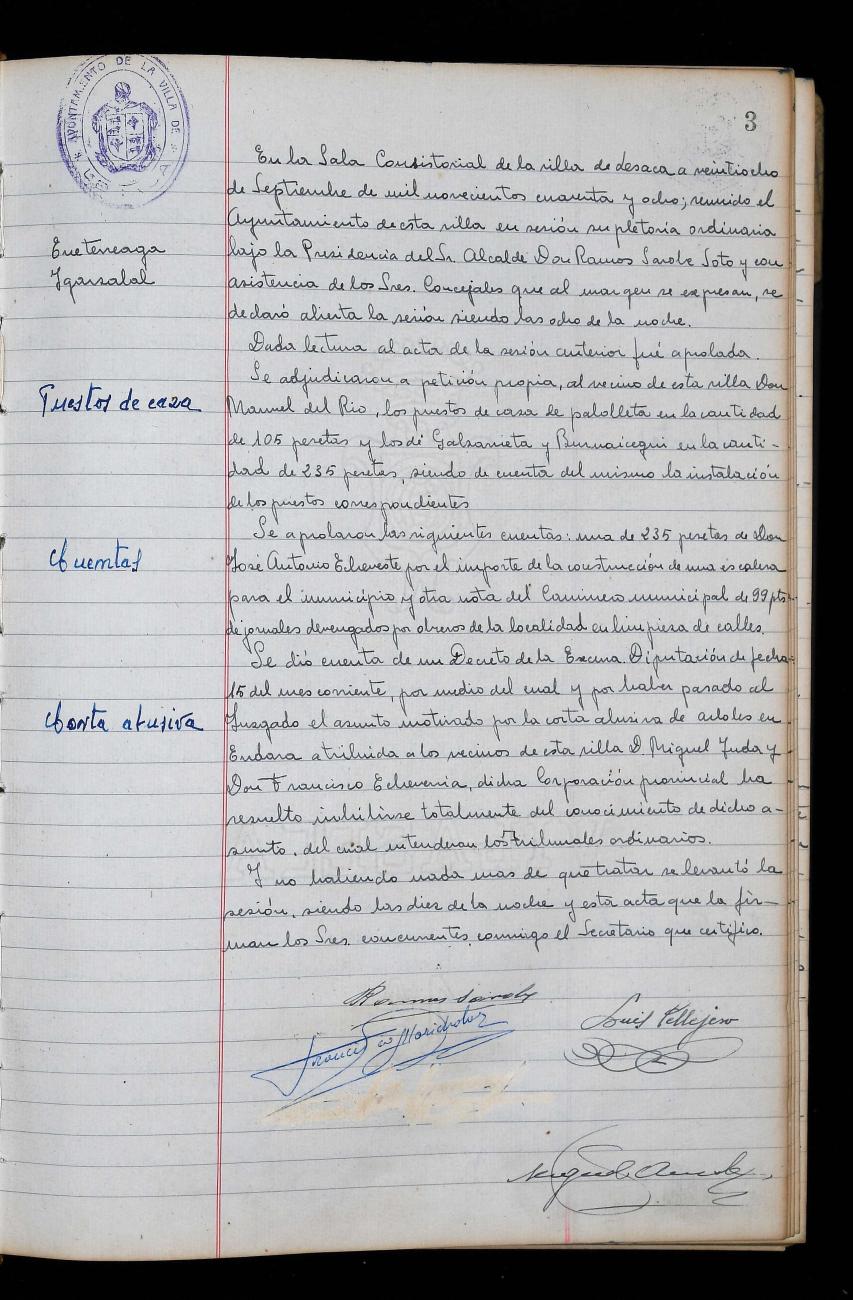 AYUNTAMIENTO DE LA VILLA DE LESACA
3
En la Sala Consistorial de la villa de Lesaca a veintiocho
de Septiembre de mil novecientos cuarenta y ocho; reunido el
Ayuntamiento de esta villa en sesión supletoria ordinaria
Ereteneaga
bajo la Presidencia del Sr. Alcalde Don Ramos Sarobe Soto y con
Igarzabal
asistencia de los Sres. Concejales que al margen se expresan, se
declaró abierta la sesión siendo las ocho de la noche.
Dada lectura al acta de la sesión anterior fué aprobada.
Se adjudicaron a petición propia, al vecino de esta villa Don
Puestos de caza
Manuel del Rio, los puestos de casa de palolleta en la cantidad
de 105 pesetas y los de Galzarrieta y Burnaicegui en la canti-
dad de 235 pesetas, siendo de cuenta del mismo la instalación
de los puestos correspondientes
Se aprobaron las siguientes cuentas: una de 235 pesetas de Don
Cuentas
José Antonio Echeveste por el importe de la construcción de una escalera
para el municipio y otra nota del Caminero municipal de 99 pts.
de jornales devengados por obreros de la localidad en limpieza de calles.
Se dió cuenta de un Decreto de la Excma. Diputación de fecha
15 del mes corriente, por medio del cual y por haber pasado al
Corta abusiva
Juzgado el asunto motivado por la corta abusiva de arboles en
Endara atribuida a los vecinos de esta villa D. Miguel Juda y
Don Francisco Echeverria, dicha Corporación provincial ha
resuelto inhibirse totalmente del conocimiento de dicho a-
sunto, del cual entenderan los tribunales ordinarios.
Y no habiendo nada mas de que tratar se levantó la
sesión, siendo las diez de la noche y esta acta que la fir-
man los Sres. concurrentes conmigo el Secretario que certifico.
Ramos Sarobe
Luis Tellijero
Francisco
Miguel